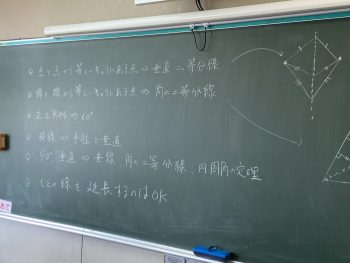 点と点から等しいキョリにある点 ⇒ 垂直二等分線
線と線から等しいキョリにある点 ⇒ 角の二等分線
正三角形 ⇒ 60°
接線 ⇒ 半径と垂直
90°, 垂直 ⇒ 垂線, 角の二等分線, 円周角の定理
線を延長するのはOK